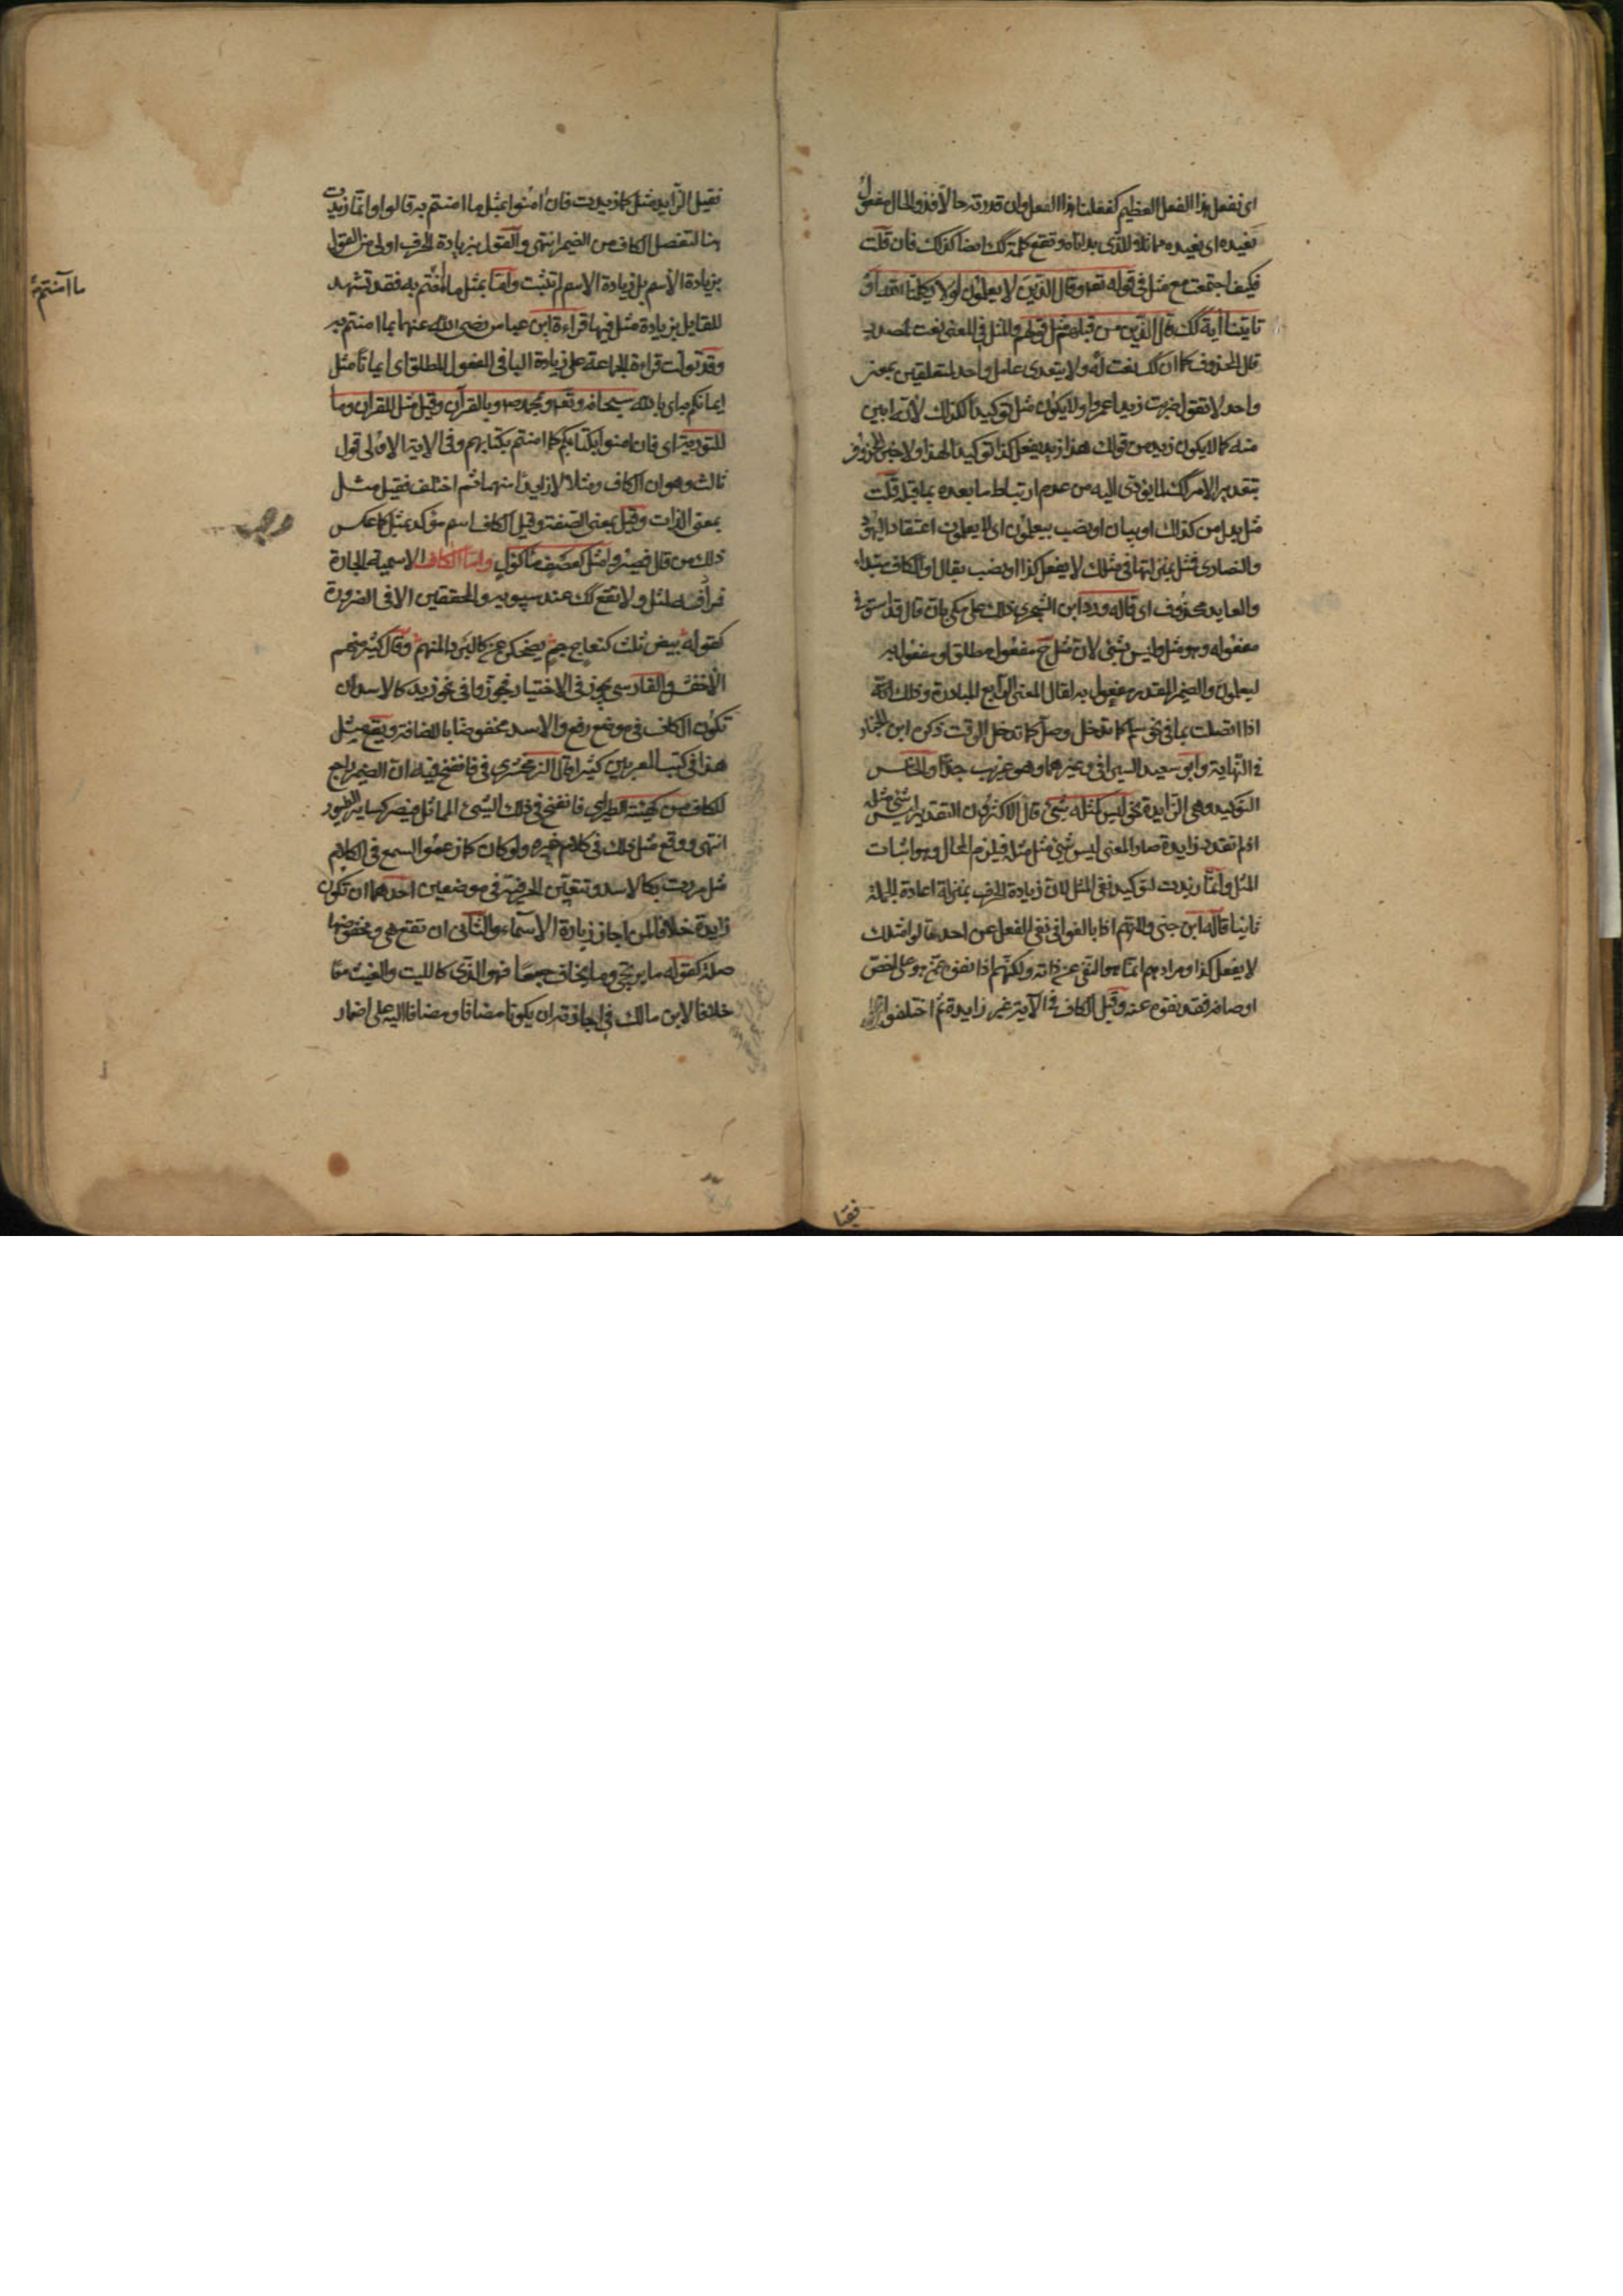 اى نفعل هذا الفعل العظيم كفعلنا هذا الفعل وان قدرته حالا فذو الحال مفعول
نعيده اى نعيده مماثلا للذى بداناه وتقع كلمة كك ايضا كذلك فان قلت
فكيف اجتمعت مع مثل فى قوله تعه وقال الذين لا يعلمون لولا يكلمنا الله او
تاتينا آية كك قال الذين من قبلهم مثل قولهم والمثل فى المعنى نعت لمصدر
قال المحذوف كما ان كك نعت له ولا يتعدى عامل واحد لمتعلقين بمعنى
واحد لا تقول ضربت زيدا عمروا ولا يكون مثل توكيدا لكذلك لانه ابين
منه كما لا يكون زيد من قولك هذا زيد يفعل كذا توكيدا لهذا ولا خبر المحذوف
بتقدير الامر كك لما يؤدى اليه من عدم ارتباط ما بعده بما قبله قلت
مثل بدل من كذلك او بيان او نصب بيعلمون اى لا يعلمون اعتقاد اليهود
والنصارى فمثل بمنزلتها فى مثلك لا يفعل كذا او نصب بقال او الكاف مبتداء
والعايد محذوف اى قاله ورد ابن الشجرى ذلك على مكى بان قال قد استوفى
مفعوله وهو مثل وليس بشئ لان مثل ح مفعول مطلق او مفعول به
ليعلمون والضمير المقدر مفعول به لقال المعنى الرابع المبادرة وذلك
اذا اتصلت بما فى نحو سلم كما تدخل وصل كما تدخل الوقت ذكره ابن الخباز
فى النهاية وابو سعيد السيرافى وغيرهما وهو غريب جدا والخامس
التوكيد وهى الزايدة نحو ليس كمثله شئ قال الاكثرون التقدير ليس شئ مثله
اذ لم تقدر زايدة صار المعنى ليس شئ مثل مثله فيلزم المحال وهو اثبات
المثل وانما زيدت لتوكيد نفى المثل لان زيادة الحرف بمنزلة اعادة الجملة
ثانيا قاله ابن جنى ولانهم اذا بالغوا فى نفى الفعل عن احد قالوا مثلك
لا يفعل كذا ومرادهم انما هو النفى عن ذاته ولكنهم اذا نفوه عمن هو على اخص
اوصافه فقد نفوه عنه وقيل الكاف فى الآية غير زايدة ثم اختلفوا
فقيل
فقيل الزايد مثل كما زيدت فان امنوا بمثل ما امنتم به قالوا وانما زيدت
هنا لتفصل الكاف من الضمير انتهى والقول بزيادة الحرف اولى من القول
بزيادة الاسم بل زيادة الاسم لم تثبت واما بمثل ما امنتم به فقد تشهد
للقايل بزيادة مثل فيها قراءة ابن عباس رضى الله عنهما بما امنتم به
وقد تولت قراءة الجماعة على زيادة البا فى المفعول المطلق اى ايمانا مثل
ايمانكم به اى بالله سبحانه وتعه وبمحمد ص وبالقرآن وقيل مثل للقران وما
للتورية اى فان امنوا بكتابكم كما امنتم بكتابهم وفى الاية الاولى قول
ثالث وهو ان الكاف ومثلا لا زايد منهما ثم اختلف فقيل مثل
بمعنى الذات وقيل بمعنى الصفة وقيل الكاف اسم مؤكد بمثل كما عكس
ذلك من قال فصيروا مثل كعصف ماكول واما الكاف الاسمية الجارة
فمرادفة لمثل ولا تقع كك عند سيبويه والمحققين الا فى الضرورة
كقوله بيض ثلث كنعاج جم يضحكن عن كالبرد المنهم وقال كثير منهم
الاخفش والفارسى يجوز فى الاختيار فجوزوا فى نحو زيد كالاسد ان
تكون الكاف فى موضع رفع والاسد مخفوضا بالاضافة ويقع مثل
هذا فى كتب المعربين كثيرا قال الزمخشرى فى فانفخ فيه ان الضمير راجع
للكاف من كهيئة الطير اى فانفخ فى ذلك الشئ المماثل فيصير كساير الطيور
انتهى ووقع مثل ذلك فى كلام غيره ولو كان كما زعموا لسمع فى الكلام
مثل مررت بكالاسد وتتعين الحرفية فى موضعين احدهما ان تكون
زايدة خلافا لمن اجاز زيادة الاسماء والثانى ان تقع هى ومخفوضها
صلة كقوله ما يرتجى وما يخاف جمعا فهو الذى كالليث والغيث معا
خلافا لابن مالك فى اجازته ان يكونا مضافا ومضافا اليه على اضمار
ما آمنتم به